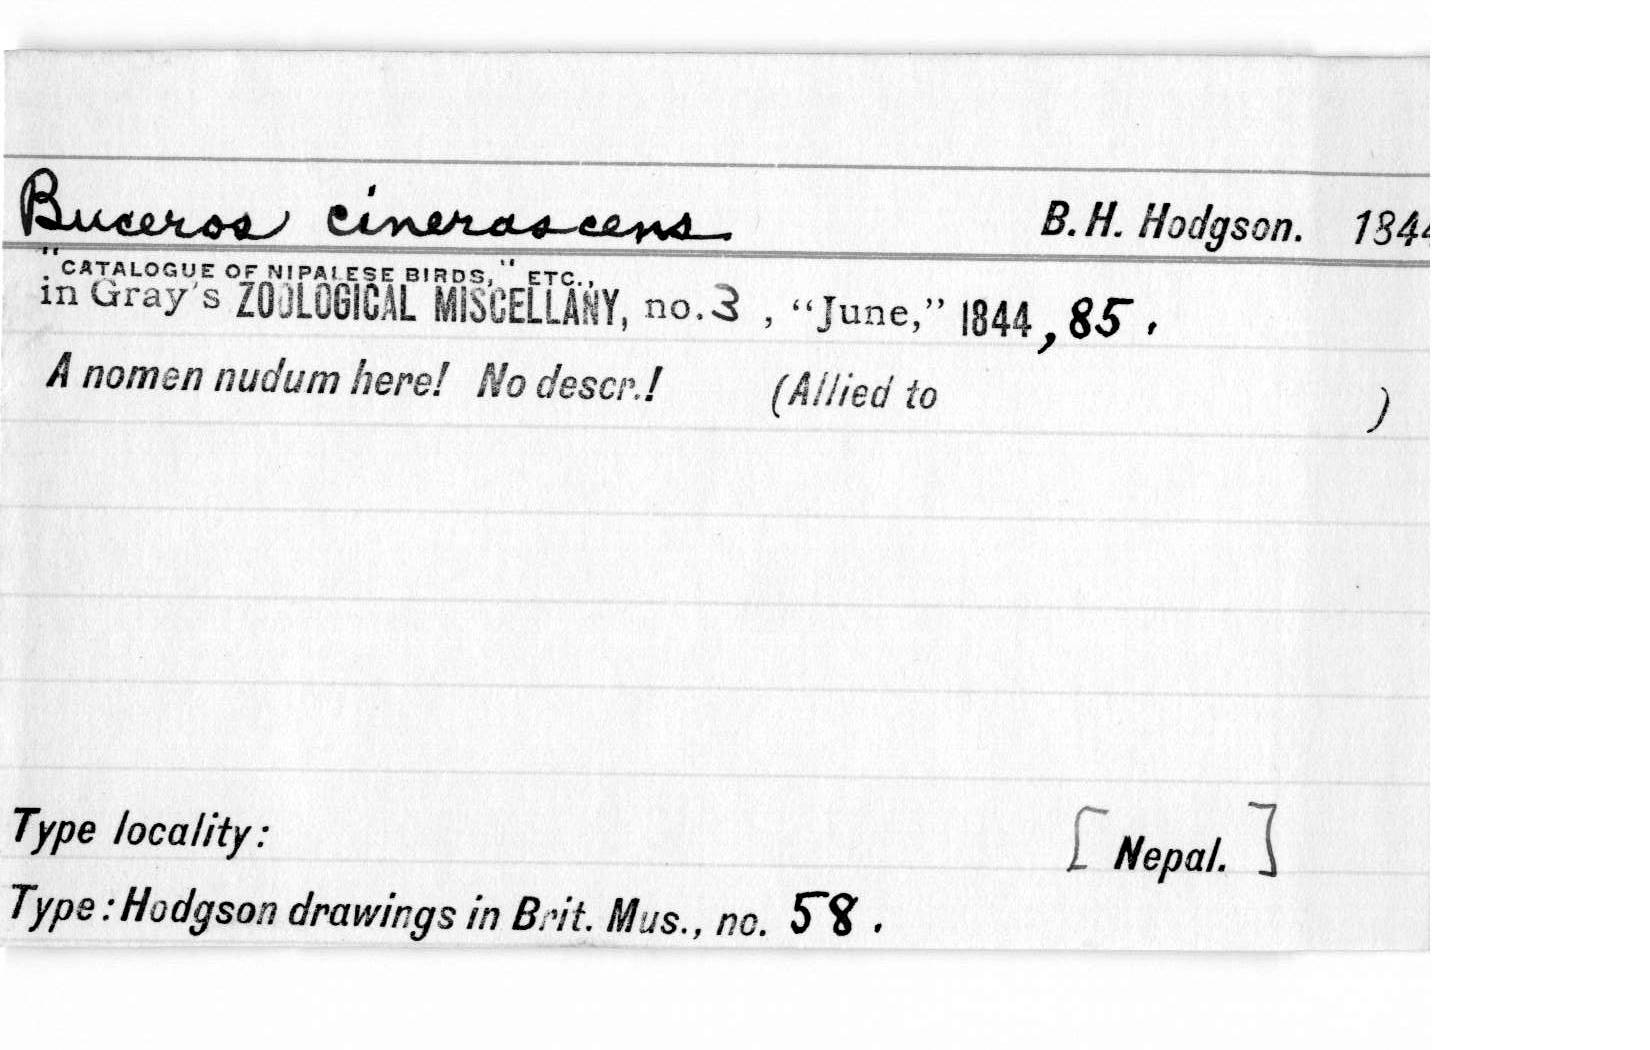 Buceros cinerascens B. H. Hodgson. 1844
"CATALOGUE OF NIPALESE BIRDS," ETC.,
in Gray's ZOOLOGICAL MISCELLANY, no. 3, "June," 1844, 85.
A nomen nudum here! No descr.! (Allied to )
Type locality: [Nepal.]
Type: Hodgson drawings in Brit. Mus., no. 58.